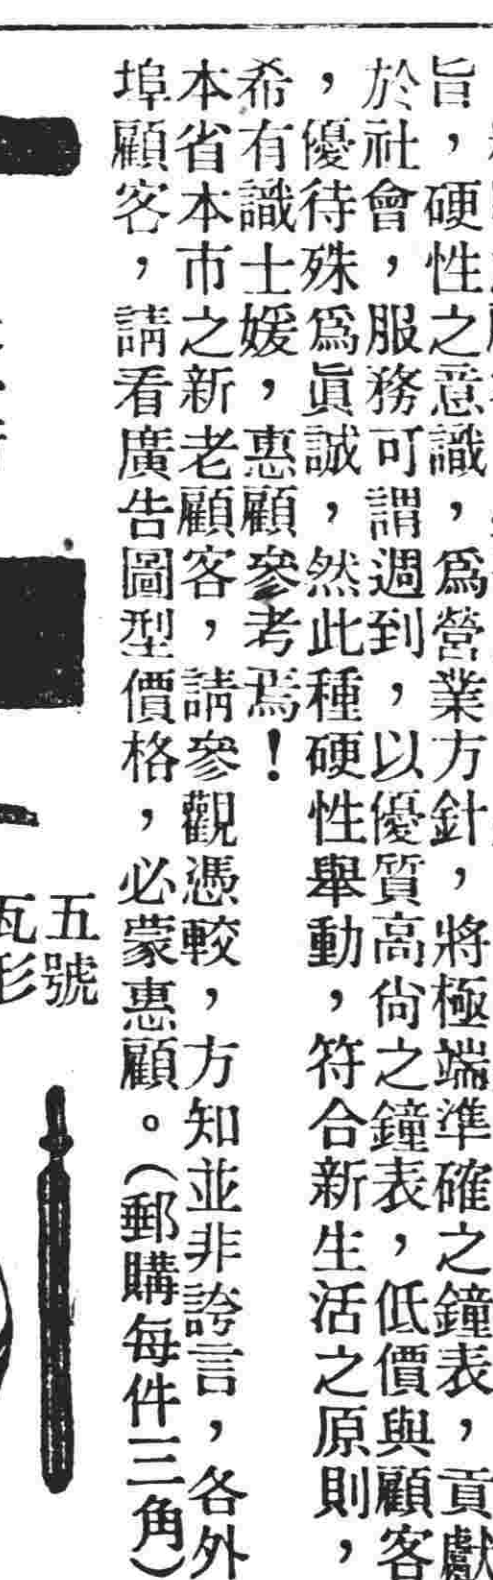 旨，硬性之意識，爲營業方針，將極端準確之鐘表，貢獻
於社會，服務可謂週到，以優質高尙之鐘表，低價與顧客
，優待殊爲眞誠，然此種硬性舉動，符合新生活之原則，
希有識士媛，惠顧參考焉！
本省本市之新老顧客，請參觀憑較，方知並非誇言，各外
埠顧客，請看廣告圖型價格，必蒙惠顧。（郵購每件三角）
五號
瓦形